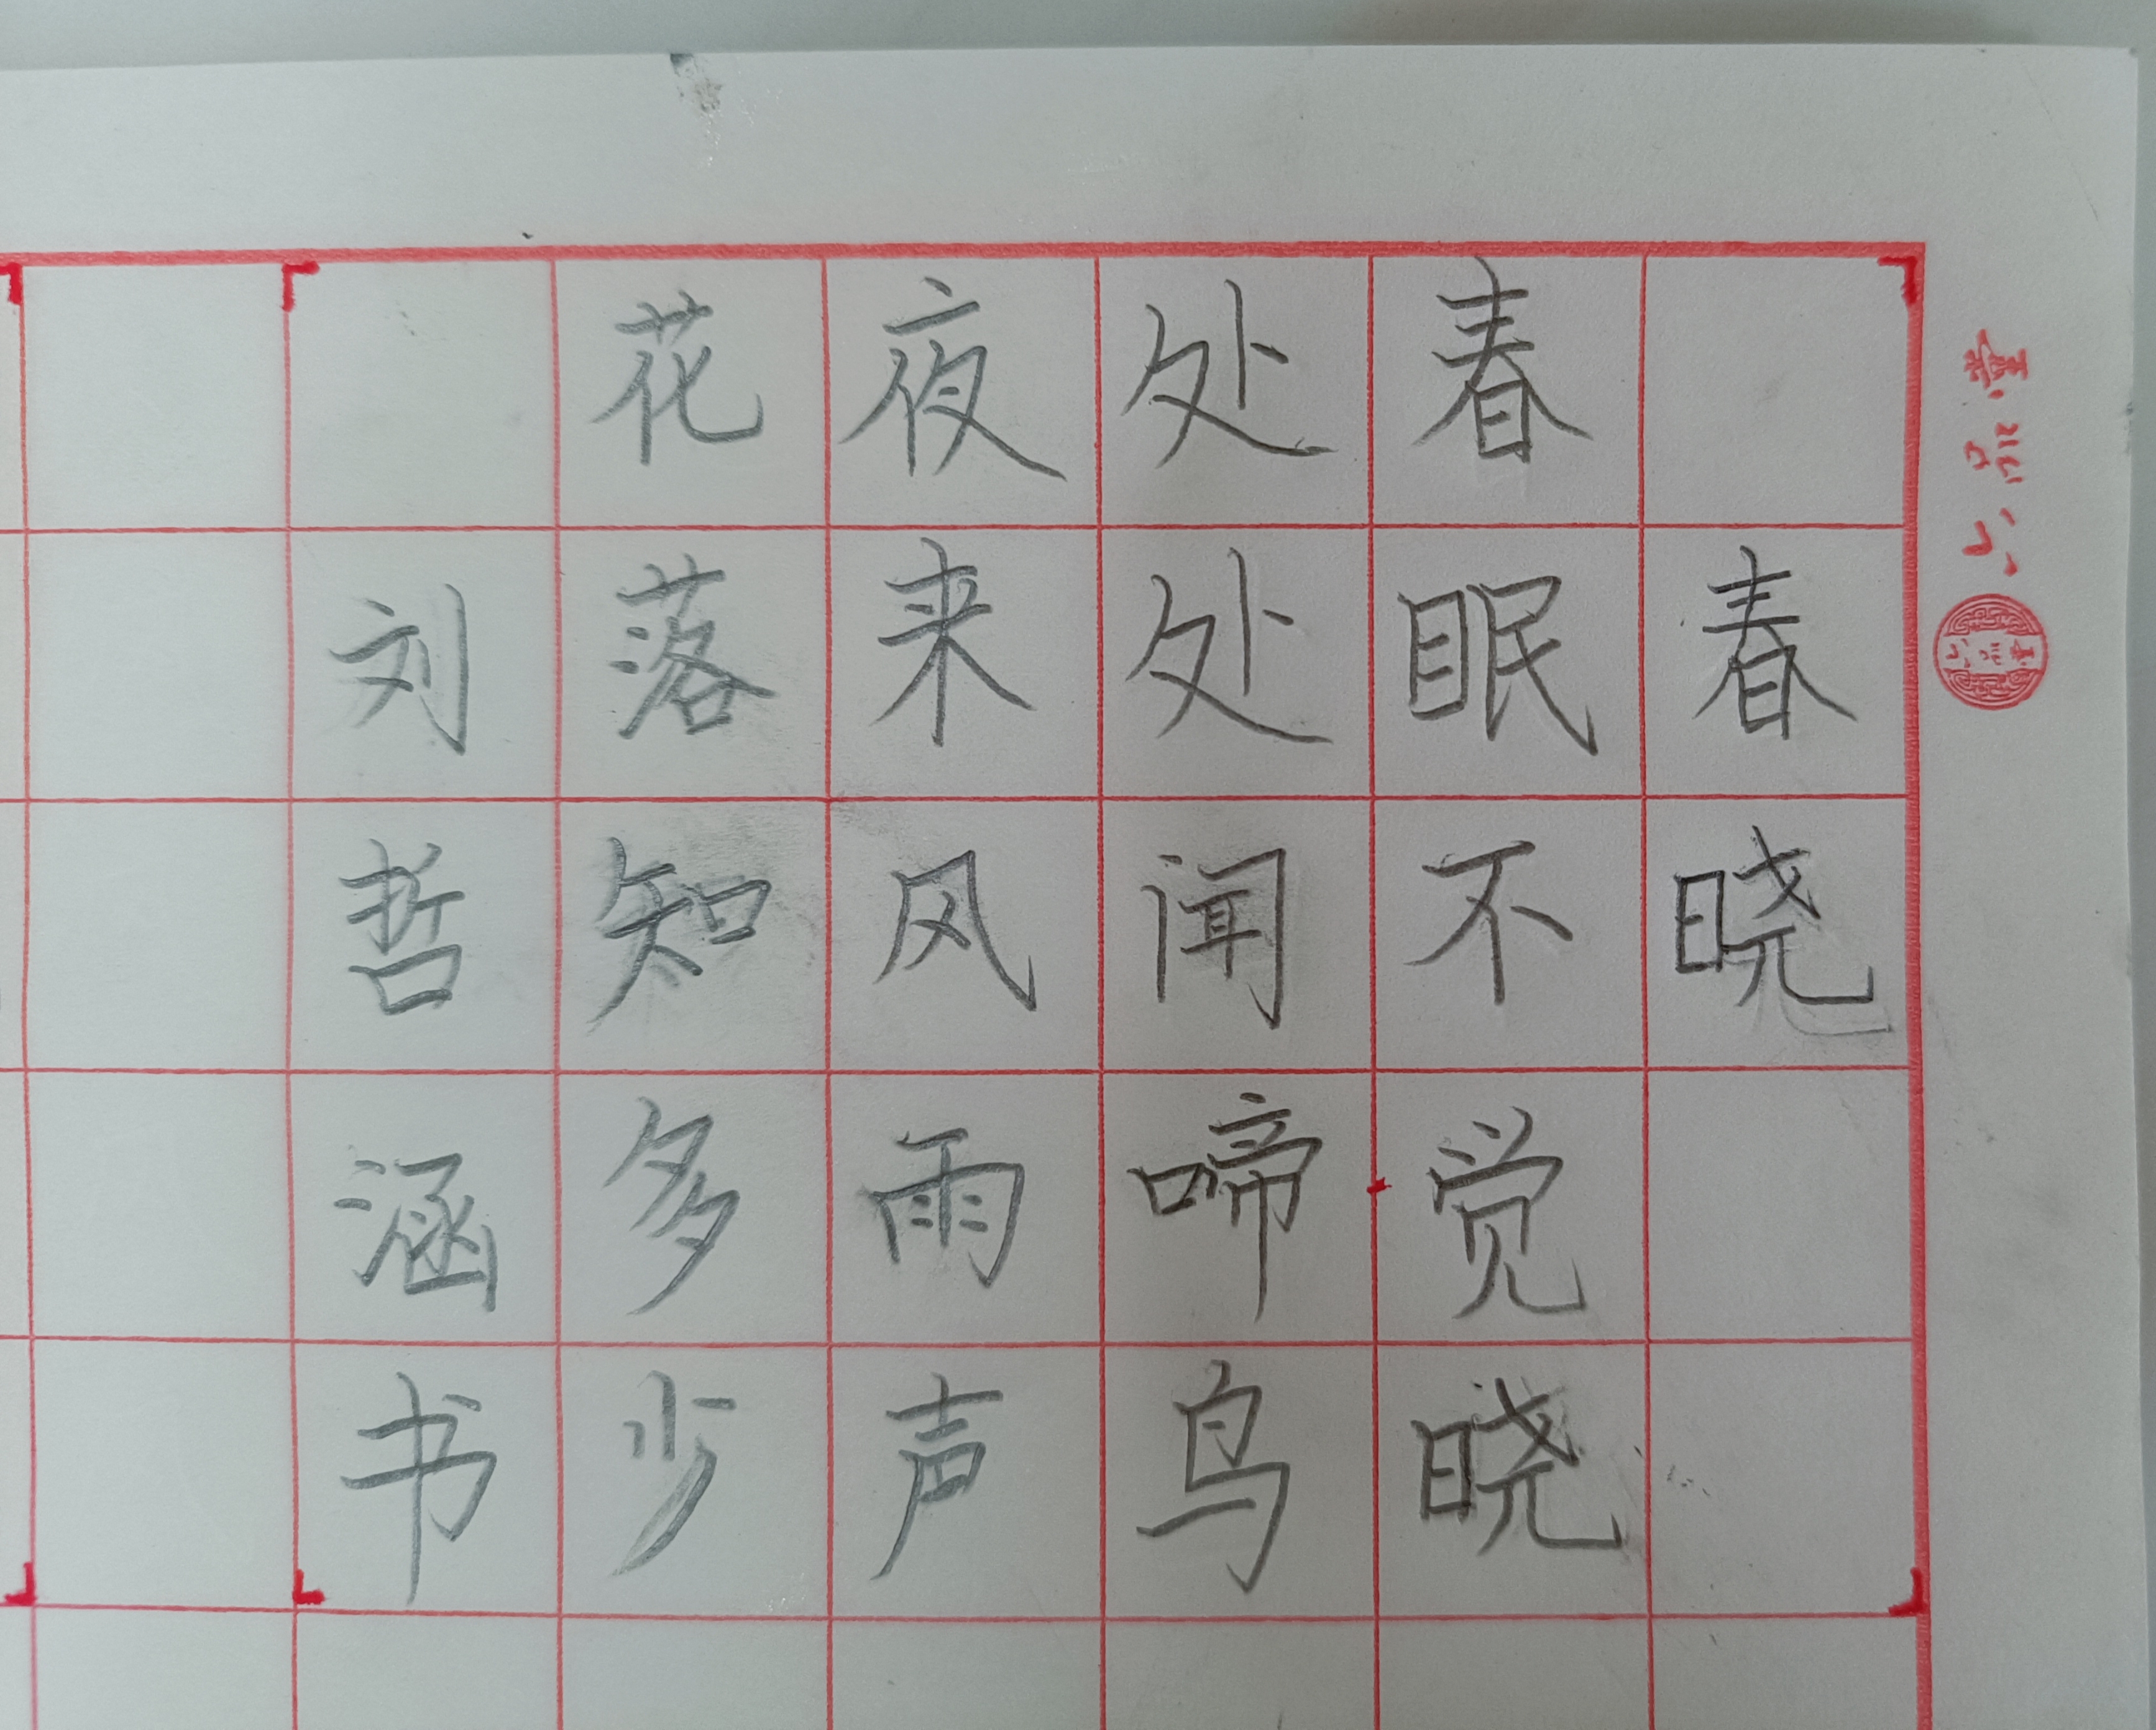 春晓
春眠不觉晓
处处闻啼鸟
夜来风雨声
花落知多少
刘哲涵书
六品堂
六品堂